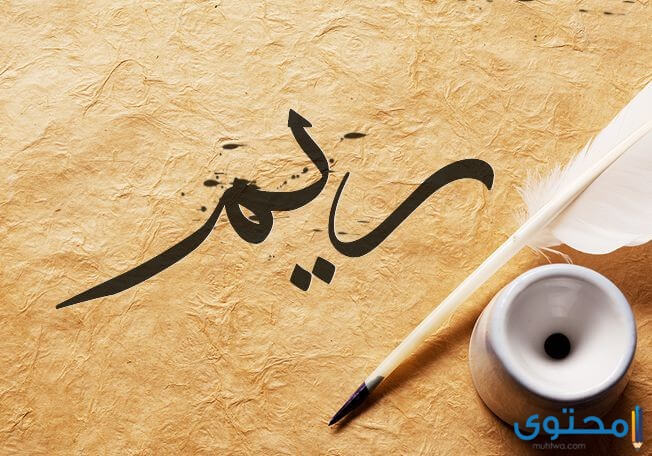 ريم
محتوى
muhtwa.com